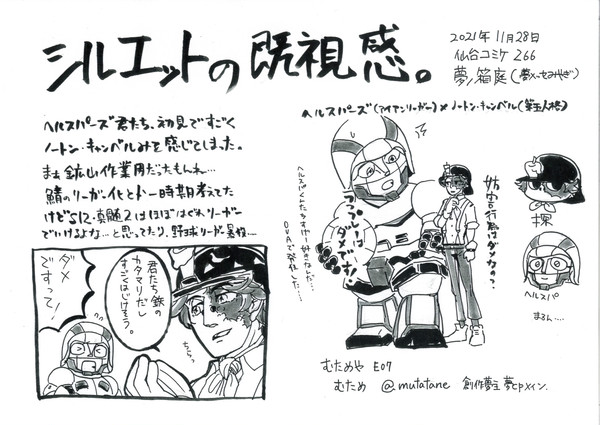 シルエットの既視感。
2021年11月28日
仙台コミケ266
夢ノ箱庭(夢メッセみやぎ)
ヘルスパーズ君たち、初見ですごく
ノートン・キャンベルみを感じてしまった。
まぁ鉱山作業用だったもんね…
鯖のリーガー化とか一時期考えてた
けどS12・真髄2はほぼはぐれリーガー
でいけるよな…と思ってたり、野球リーガー
ヘルスパーズ(アイアンリーガー)×ノートン・キャンベル(第五人格)
ヘルスパくんたちすげー好きなんだ…
OVAで発狂した…
ラフプレーは
ダメです!
妨害行為は
ダメなのっ?
探
ヘルスパ
まるん…
ダメ
ですって!
君たち鉄の
カタマリだし
すごはじけそう。
ちらっ
むためや E07
むため @mutatane 創作夢主夢cpメイン.